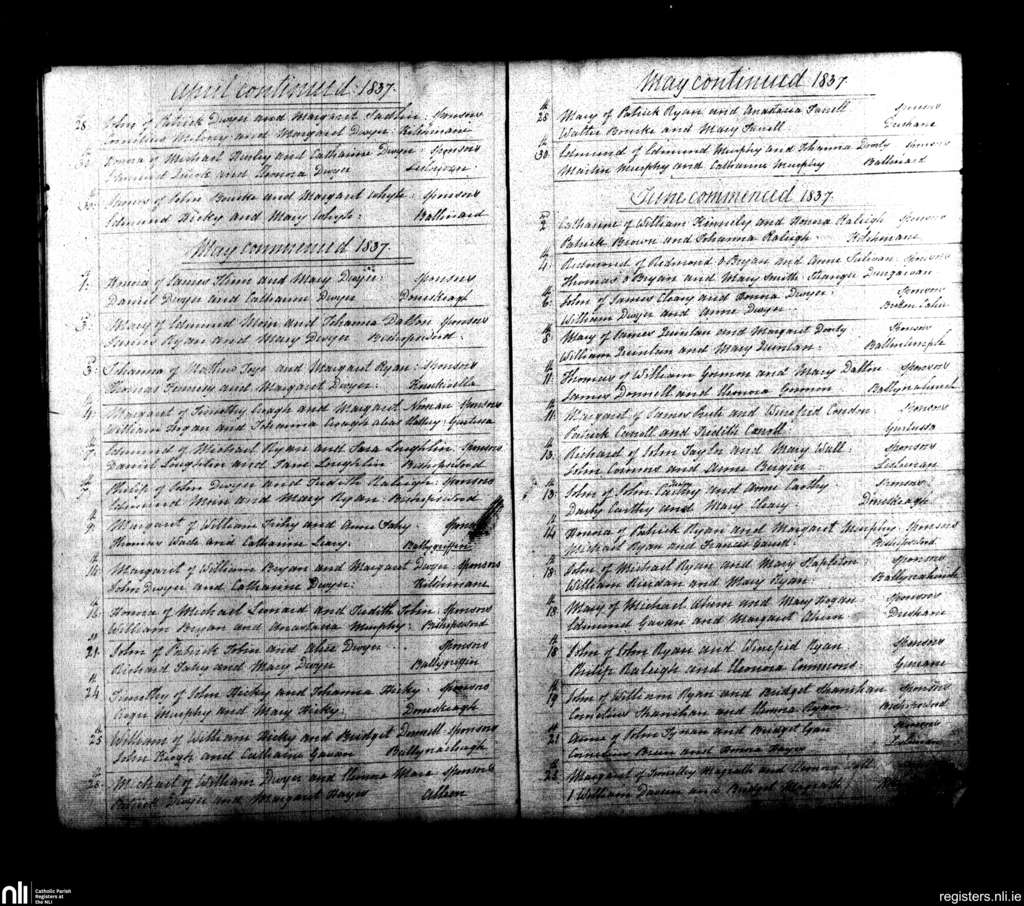 April continued 1837.
28. John of Patrick Dwyer and Margaret Sadlier: Sponsors
Cornelius and Margaret Dwyer: Kilshmane
30. Honna of Michael and Catharine Dwyer: Sponsors
and Elenora Dwyer
30. James of John Burke and Margaret Whyte: Sponsors
Edmund Hicky and Mary Whyte: Ballinard
May commenced 1837.
1. Honna of James and Mary Dwyer: Sponsors
Daniel Dwyer and Catharine Dwyer Donaskeagh
3. Mary of Edmund Moin and Johanna Dalton Sponsors
James Ryan and Mary Dwyer Bishopswood.
3. Johanna of Mathew and Margaret Ryan: Sponsors
Thomas and Margaret Dwyer: Knockivella
4. Margaret of Timothy Creagh and Margaret Noman Sponsors
William Hogan and Johanna Creagh alias Slattery: Gurtussa
5. Edmund of Michael Ryan and Sara Loughlin Sponsors
Daniel Loughlin and Jane Loughlin Bishopswood
7. Philip of John Dwyer and Judith Raleigh: Sponsors
Edmund Moin and Mary Ryan: Bishopswood
9. Margaret of William and Anne Fahy: Sponsors
Thomas Wade and Catharine Leary: Ballygriffin
14. Margaret of William Bryan and Margaret Dwyer Sponsors
John Dwyer and Catharine Dwyer: Kilshmane
16. Honna of Michael Lonard and Judith John: Sponsors
William Bryan and Anastasia Murphy: Bishopswood
21. John of Patrick John and Alice Dwyer Sponsors
Richard Fahy and Mary Dwyer Ballygriffin
24 Timothy of John Hicky and Johanna Hicky. Sponsors
Murphy and Mary Hicky: Donaskeagh
25. William of William Hicky and Bridget Donnell Sponsors
John Keogh and Catharine Gavan Ballynahinch
Michael of William Dwyer and Elenora Mara Sponsors
Patrick Dwyer and Margaret Hayes Alleen
May continued 1837
28 Mary of Patrick Ryan and Anastasia Farrell Sponsors
Walter Bourke and Mary Farrell Deshane
30. Edmund of Edmund Murphy and Johanna Dooly Sponsors
Martin Murphy and Catharine Murphy Ballinard
June commenced 1837.
2 Catharine of William Kinnily and Honna Raleigh Sponsors
Patrick Brown and Johanna Raleigh. Kilshmane
4. Redmond of Redmond O Bryan and Anne Sulivan Sponsors
Thomas O Bryan and Mary Smith: Stranger Dungarvan
6. John of James Cleary and Honna Dwyer: Sponsors
William Dwyer and Anne Dwyer
8. Mary of James Quinlan and Margaret Dooly Sponsors
William Quinlan and Mary Quinlan: Ballintemple
11. Thomas of William Gorman and Mary Dalton Sponsors
James Donnell and Elenora Gorman Ballynahinch
11. Margaret of James and Winefrid Condon Sponsors
Patrick Carroll and Judith Carroll Gurtussa
13. Richard of John Taylor and Mary Wall: Sponsors
John Commins and Anne Bergin
13. John of John Carthy and Anne Carthy Sponsors
Darby Carthy and Mary Cleary: Donaskeagh
14 Honna of Patrick Ryan and Margaret Murphy Sponsors
Michael Ryan and Frances Bishopswood
18. John of Michael Ryan and Mary Stapleton: Sponsors
William Riordan and Mary Ryan: Ballynahinch
18. Mary of Michael Ahern and Mary Hogan Sponsors
Edmund Gavan and Margaret Ahern Deshane
18 John of John Ryan and Winefrid Ryan Sponsors
Philip Raleigh and Elenora Commons
19 John of William Ryan and Bridget Shanihan Sponsors
Cornelius Shanihan and Honna Ryan Bishopswood
21 Anne of John Tynan and Bridget Sponsors
Cornelius Breen and Honna Hayes
Margaret of Timothy Magrath and Elenora
William and Bridget Magrath
nli
Catholic Parish
Registers at
the NLI
registers.nli.ie